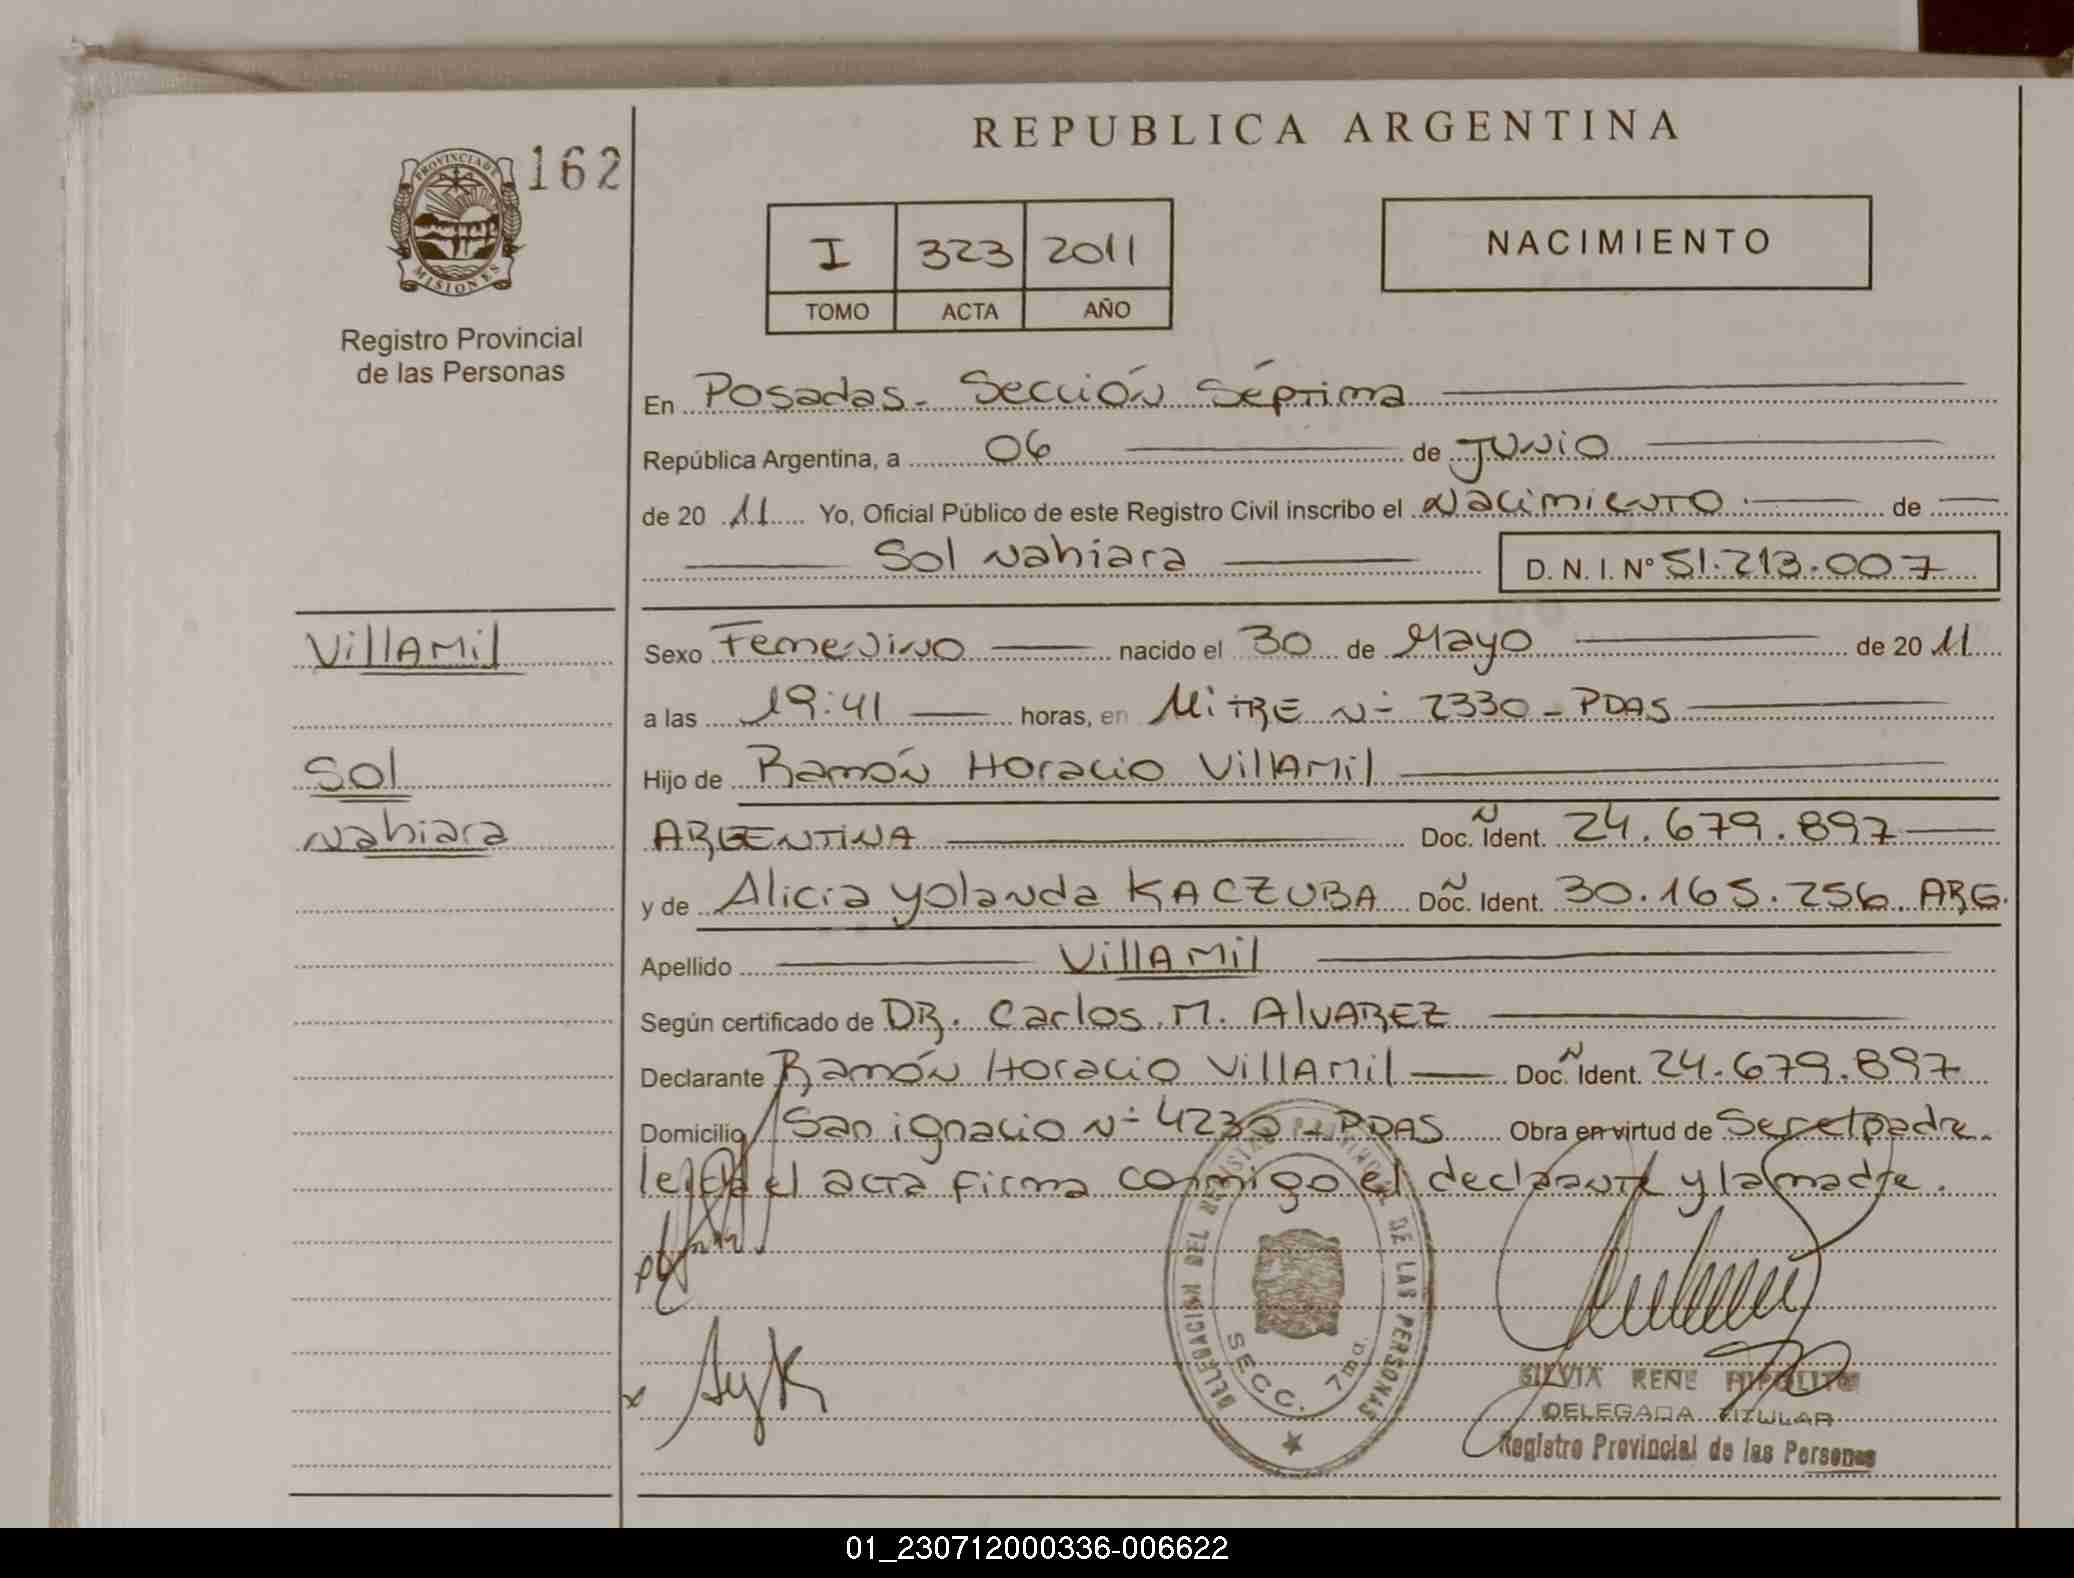 REPUBLICA ARGENTINA
162
PROVINCIA DE MISIONES
Registro Provincial
de las Personas
I 323 2011
TOMO ACTA AÑO
NACIMIENTO
En Posadas - Sección Séptima
República Argentina, a 06 de Junio
de 2011 Yo, Oficial Público de este Registro Civil inscribo el Nacimiento de
Sol Nahiara D. N. I. Nº 51.213.007
Villamil
Sol
Nahiara
Sexo Femenino nacido el 30 de Mayo de 2011
a las 19:41 horas, en Mitre Nº 2330 - PDAS
Hijo de Ramón Horacio Villamil
ARGENTINA Doc. Ident. 24.679.897
y de Alicia Yolanda KACZUBA Doc. Ident. 30.165.256 ARG.
Apellido Villamil
Según certificado de DR. Carlos M. Alvarez
Declarante Ramón Horacio Villamil Doc. Ident. 24.679.897
Domicilio San ignacio Nº 4230 - PDAS Obra en virtud de Ser el padre
leida el acta firma conmigo el declarante y la madre.
DELEGACION DEL REGISTRO PROVINCIAL DE LAS PERSONAS
SECC. 7ma.
AyK
SILVIA RENE HIPOLITO
DELEGADA TITULAR
Registro Provincial de las Personas
01_230712000336-006622